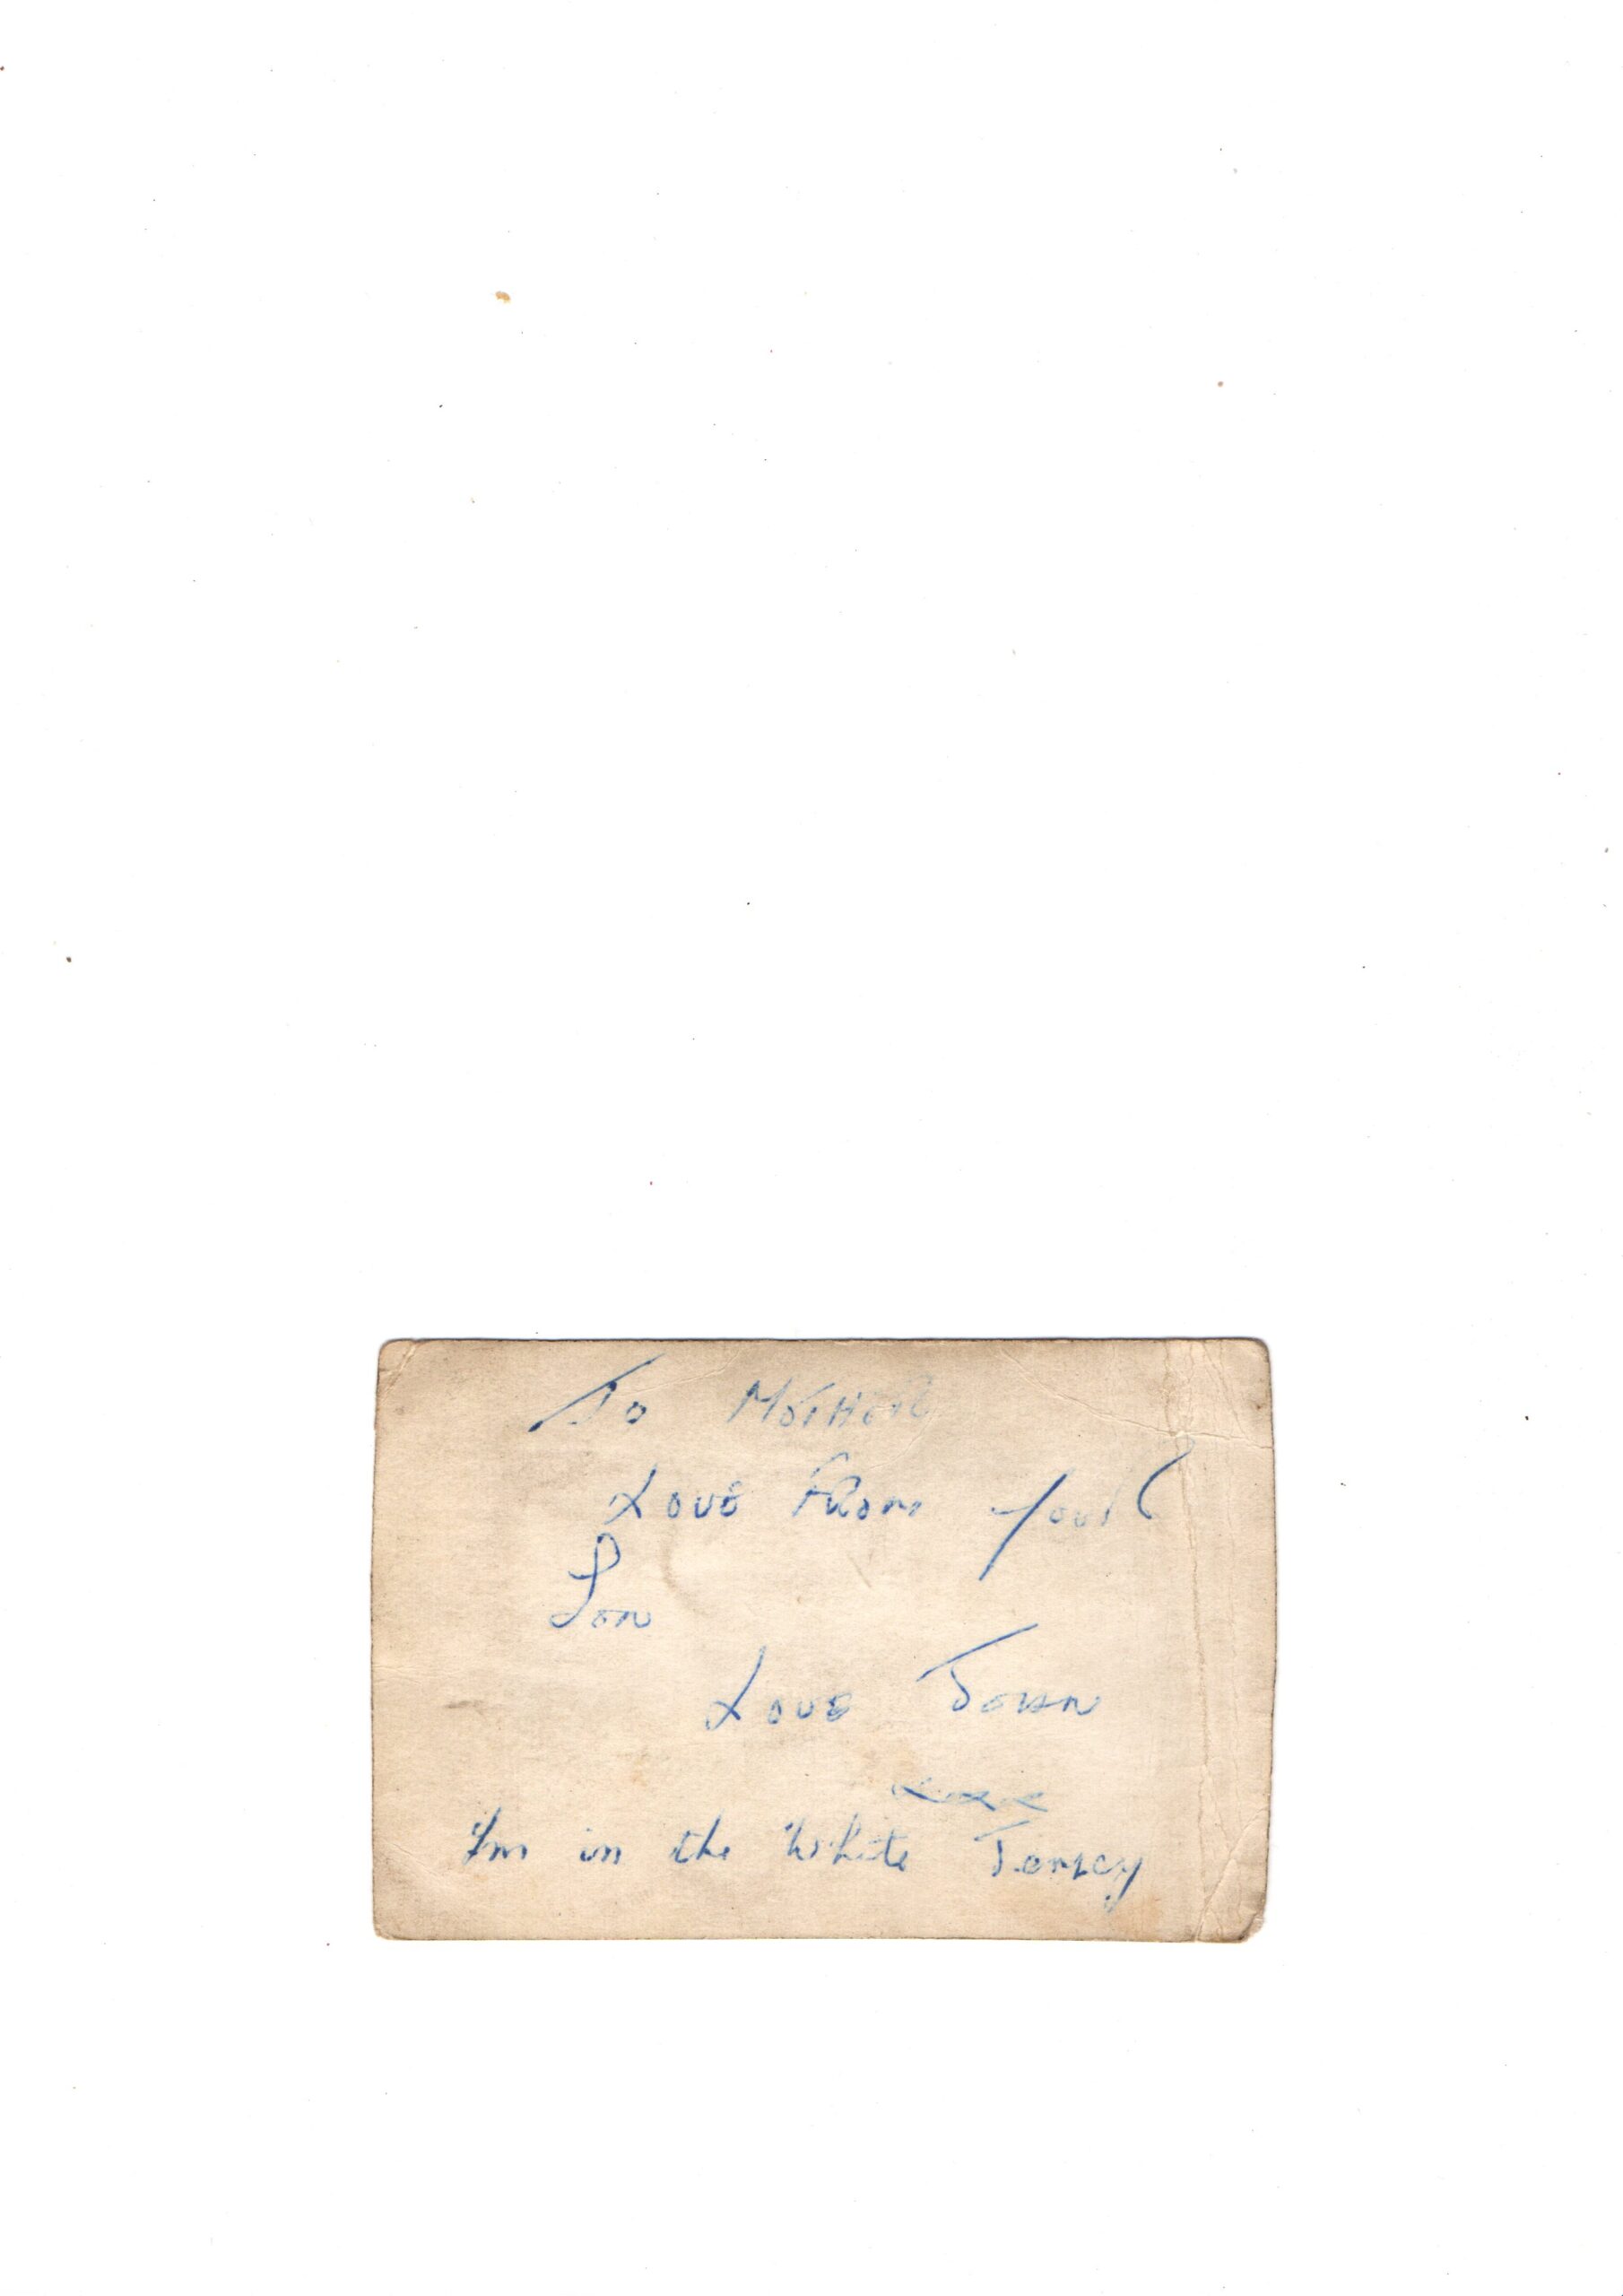 To MOTHER
LOVE FROM YOUR
Son
LOVE JOHN
xxx
I'm in the White Jersey